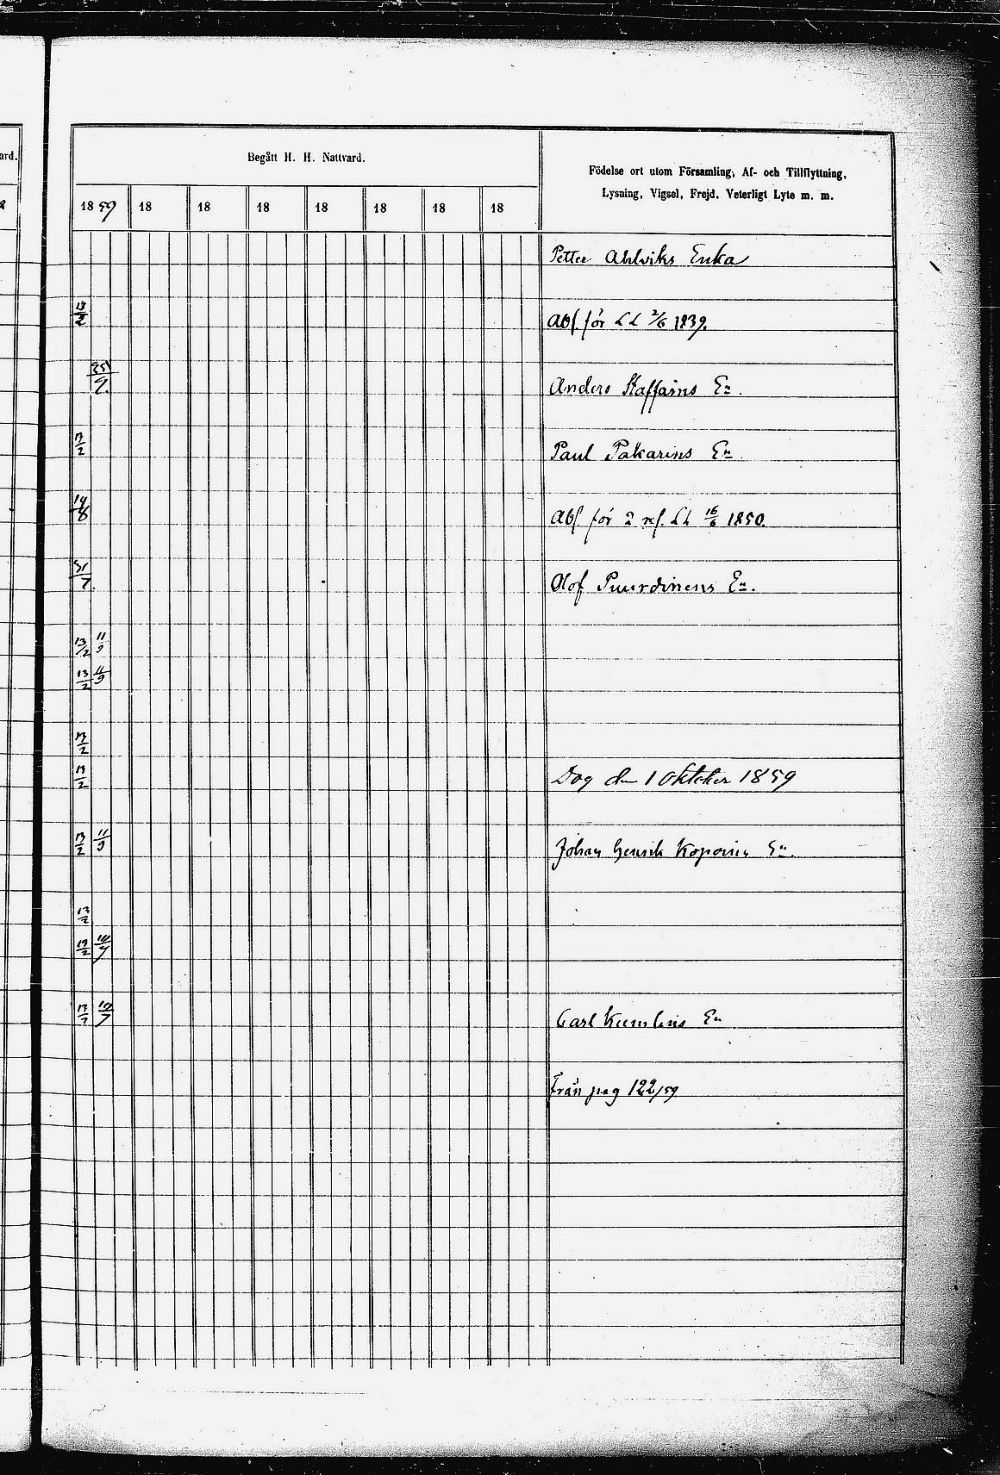 Begått H. H. Nattvard.
Födelse ort utom Församling, Af- och Tillflyttning,
Lysning, Vigsel, Frejd, Veterligt Lyte m. m.
1859 18 18 18 18 18 18 18
Petter Ahlviks Enka
13/2 Abs. för LL 2/6 1839.
25/9 Anders Staffains En.
13/2 Paul Pakarins En
14/8 Abs för 2 res. LL 16/6 1850.
31/7 Olof Puurdinens En.
13/2 11/9
13/2 11/9
13/2
13/2 Dog den 1 Oktober 1859
13/2 11/9 Johan Henrik Kopovin En.
13/2
13/2 10/7
13/2 10/7 Carl Kumlins En
Från pag 122/59